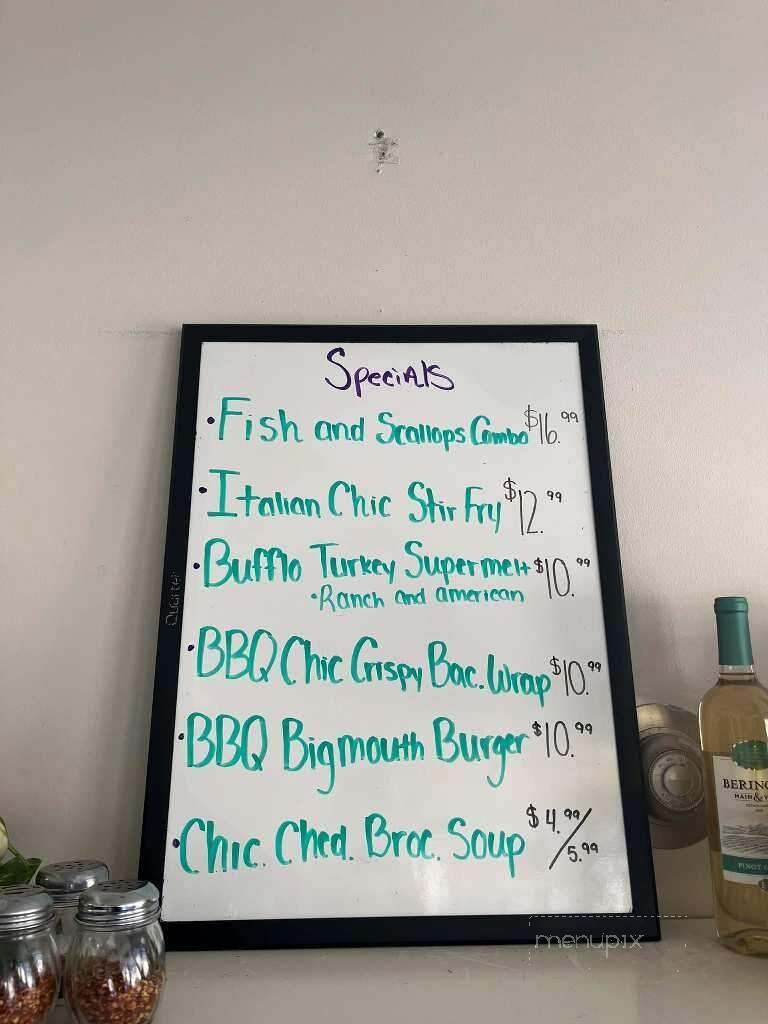 Specials
• Fish and Scallops Combo $16.99
• Italian Chic Stir Fry $12.99
• Bufflo Turkey Supermelt $10.99
• Ranch and american
• BBQ Chic Crispy Bac. Wrap $10.99
• BBQ Bigmouth Burger $10.99
• Chic. Ched. Broc. Soup $4.99/5.99
Quartet
BERING
MAIN & V
PINOT G
menupix